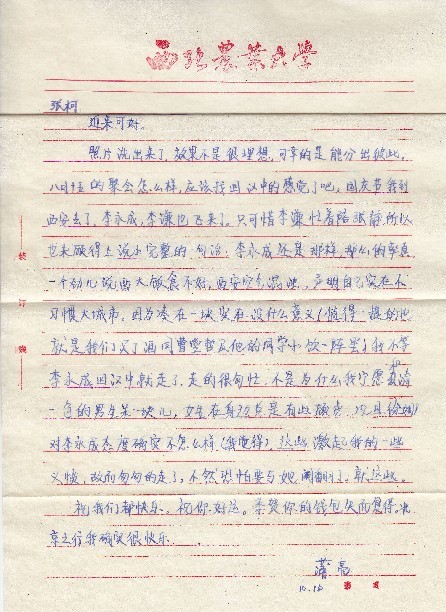 西北农业大学
张柯
近来可好。
照片洗出来了，效果不是很理想，可幸的是能分出彼此，
八月十五的聚会怎么样，应该找回汉中的感觉了吧，国庆节我到
西安去了，李永成，李谦也飞来了。只可惜李谦忙着陪张静所以
也未顾得上说上完整的句话，李永成还是那样，那么的
一个劲儿说西大饭食不好，西安空气混浊，声明自己实在不
习惯大城市，因为凑在一块实在没什么意义（值得一提的也
就是我们买了酒同曹雯哲及他的同学小饮一阵罢）我不等
李永成回汉中就走了，走的很匆忙，不是为什么我宁愿和清
一色的男生呆一块儿，女生在身边总是有些顾忌，况且
对李永成态度确实不怎么样（我觉得），这些激起我的一些
义愤，故而匆匆的走了，不然恐怕要与她闹翻了。就这些。
祝我们都快乐，祝你好运。恭贺你的钱包失而复得，
京之行我确实很快乐
萧亮
10.18
装
订
线
第 页